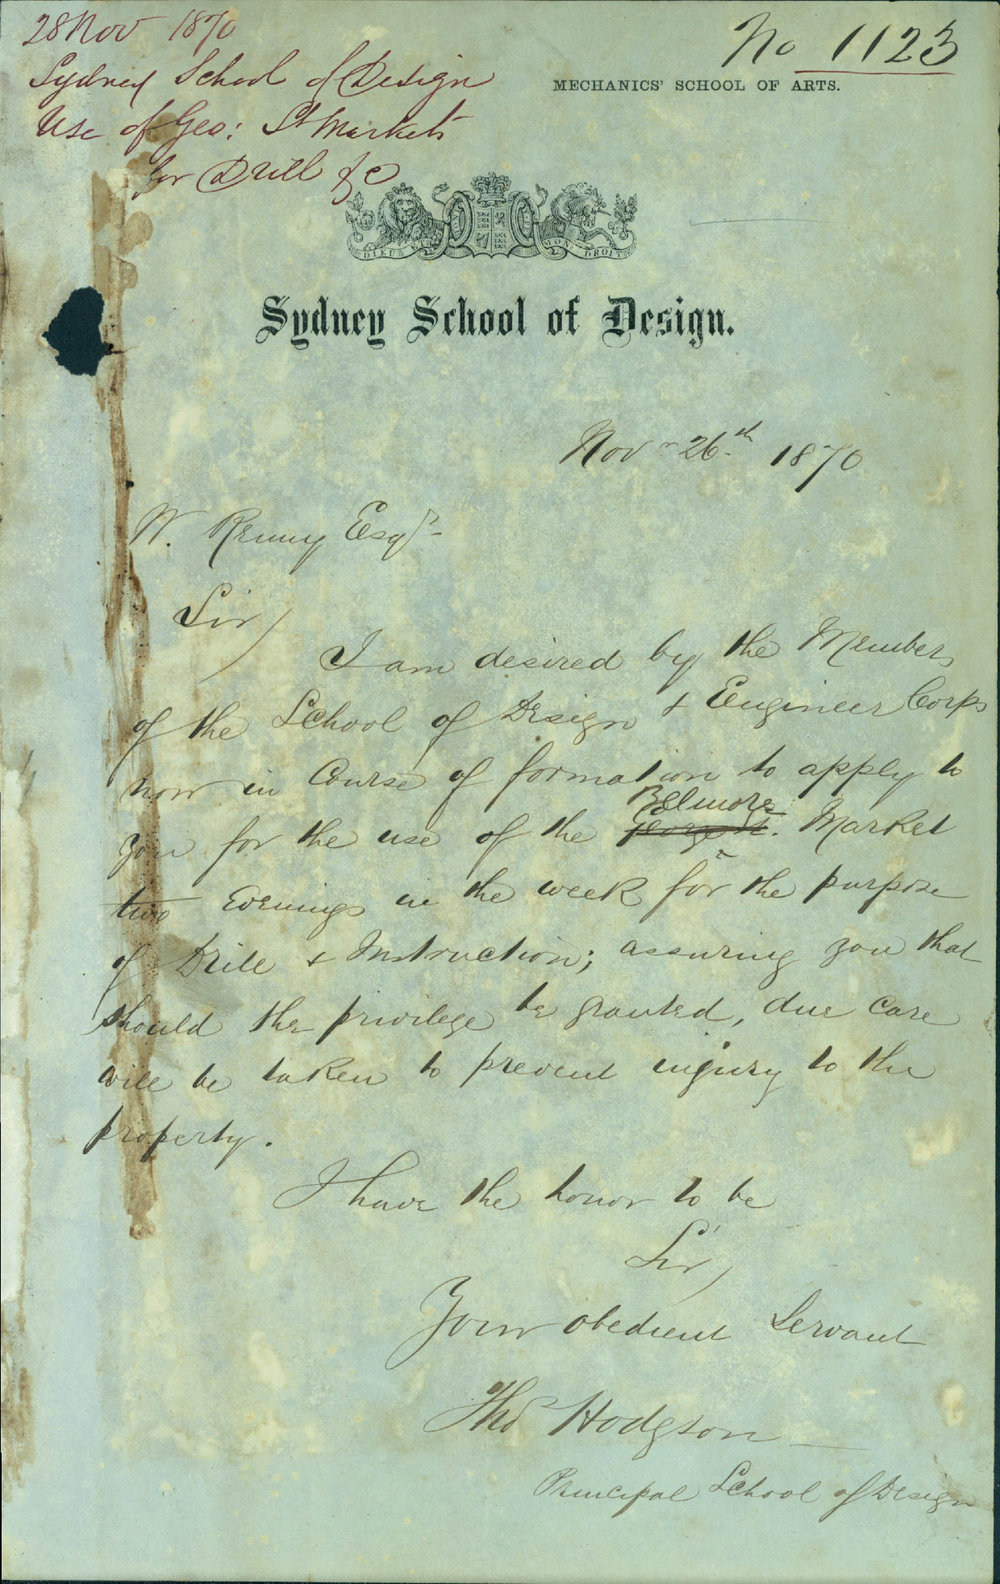 28 Nov 1870
Sydney School of Design
Use of Geo: St Markets
for Drill &c
No 1123
MECHANICS' SCHOOL OF ARTS.
DIEU ET MON DROIT
Sydney School of Design.
Nov 26th 1870
W. Renny Esqr
Sir,
I am desired by the Members
of the School of Design & Engineer Corps
now in Course of formation to apply to
Belmore
you for the use of the George St. Market
two Evenings in the week for the purpose
of Drill & Instruction; assuring you that
should the privilege be granted, due care
will be taken to prevent injury to the
property.
I have the honor to be
Sir,
Your obedient Servant
Thos Hodgson
Principal School of Design